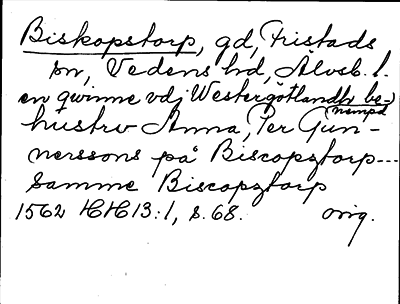 Biskopstorp, gd, Fristads
sn, Vedens hd, Älvsb. l.
en qwinne vdj Westergötlandh be-
nempd
hustrv Anna, Per Gun-
nerssons på Biscopztorp---
Samme Biscopztorp
1562 HH13:1, s. 68. orig.